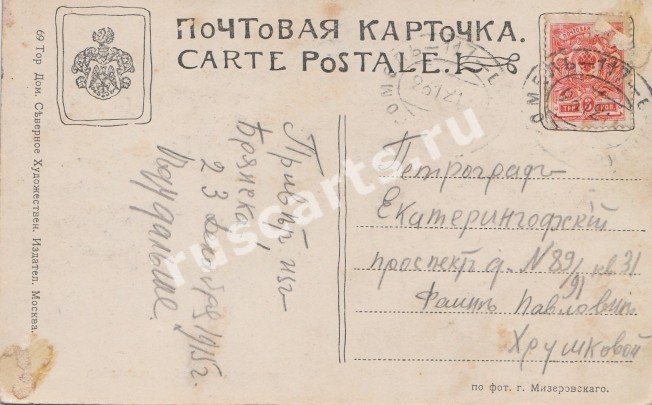 ПОЧТОВАЯ КАРТОЧКА.
CARTE POSTALE.
69 Тор. Дом. Сѣверное Художествен. Издател. Москва.
Привѣтъ изъ
23 Декабря 1915 г.
Петроградъ
Екатерингофскій
проспектъ д. N 89/91 кв. 31
Фаинѣ Павловнѣ
Хрушковой
ТРИ 3 КОП.
по фот. г. Мизеровскаго.
ruscarte.ru